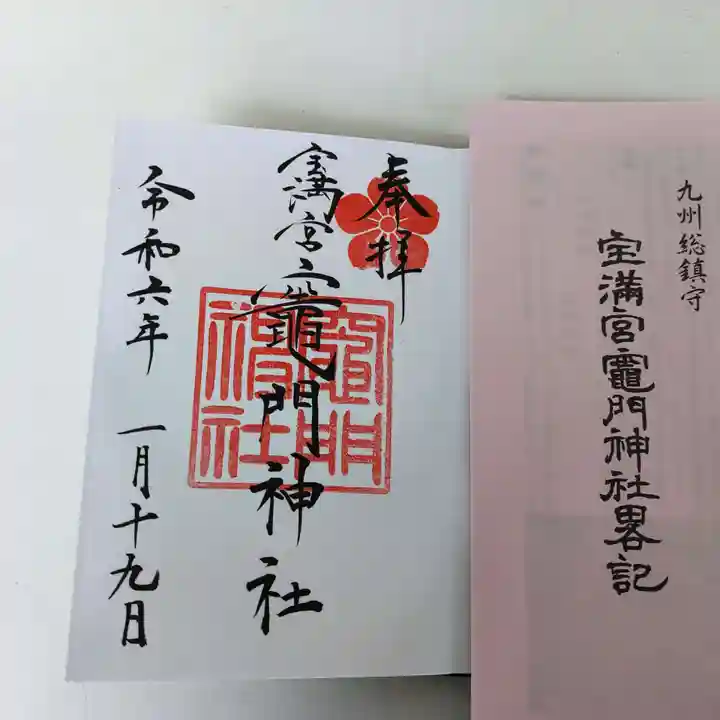 奉拝
宝満宮竈門神社
令和六年 一月十九日
竈門
神社
九州総鎮守
宝満宮竈門神社畧記